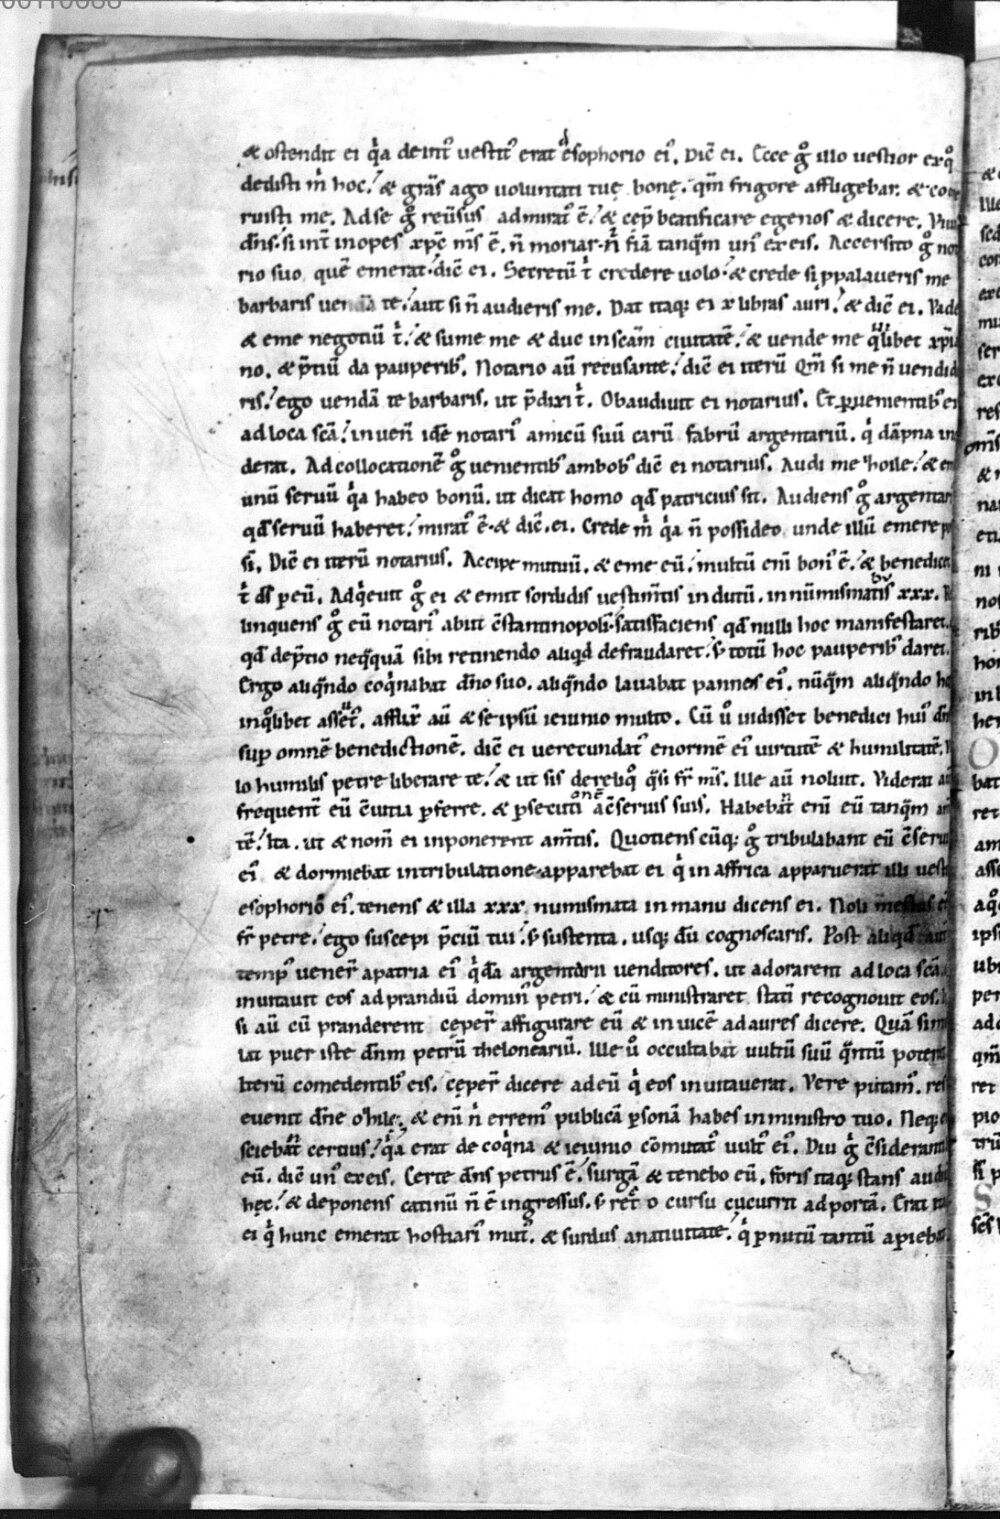 & ostendit ei q̇a deint᷒ vestit᷒ erat esophorio ei᷒. Dic̄ ei. Ecce g̊ illo vestior ex q̊
dedisti m̄ hoc. & grās ago voluntati tuę bonę. qm̄ frigore affligebar. & co
ruisti me. Ad se g̊ reūsus admirat᷒ ē. & cep̄ beatificare egenos & dicere. Vivit
dn̄s. si int̄ inopes xp̄c m̄s ē. n̄ moriar n̄ fiā tanq̄m un᷒ ex eis. Accersito g̊ no
rio suo quē emerat. dic̄ ei. Secretū t̄ credere volo. & crede si ppalaveris me
barbaris te. aut si n̄ audieris me. Dat itaq; ei x libras auri. & dic̄ ei. Vade
& eme negotiū t̄. & sume me & duc in scām civitatē. & vende me q̄libet xp̄ia
no. & p̄tiū da pauperib᷒. Notario aū recusante. dic̄ ei iterū Qm̄ si me n̄ vendid
ris. ego vendā te barbaris. ut p̄dixi t̄. Obaudivit ei notarius. Et pvenientib᷒ ei
ad loca scā. invenͥ idē notari᷒ amicū suū carū fabrū argentariū. q̇ dāpna in
derat. Ad collocationē g̊ venientib᷒ ambob᷒ dic̄ ei notarius. Audi me Zoile. & em
unū servū q̇a habeo bonū. ut dicat homo qd̄ patricius sit. Audiens g̊ argentar
qd̄ servū haberet. mirat᷒ ē. & dic̄ ei. Crede m̄ q̇a n̄ possideo unde illū emere po
sī. Dic̄ ei iterū notarius. Accipe mutuū. & eme eū. multū enī bon᷒ ē. & benedicet
t̄ ds̄ p eū. Adq̇evit g̊ ei & emit sordidis vestim̄tis indutū. in nūmismatibus xxx. R
linquens g̊ eū notari᷒ abiit c̄stantinopoli satisfaciens qd̄ nulli hoc manifestaret.
qd̄ de p̄tio neq̄quā sibi retinendo aliqd defraudaret. s; totū hoc pauperib᷒ daret.
Ergo aliq̄ndo coq̇nabat dn̄o suo. aliq̄ndo lavabat pannos ei᷒. nūq̄m aliq̄ndo h
in q̊libet afflixit aū & se ipsū ieiunio multo. Cū v̊ vidisset benedici hui᷒ dn̄s
sup omnē benedictionē. dic̄ ei verecundat᷒ enormē ei᷒ virtutē & humilitatē. V
lo humilis petre liberare te. & ut sis de reliq̊ q̄si fr̄ m̄s. Ille aū noluit. Viderat aū
frequent̄ eū c̄vitia pferre. & psecutionē a c̄servis suis. Habebāt enī eū tanq̄m am
tē. Ita. ut & nom̄ ei inponerent am̄tis. Quotienscūq; g̊ tribulabant eū c̄servi
ei᷒ & dormiebat in tribulatione. apparebat ei q̇ in affrica apparuerat illi vesti
esophoriō ei᷒. tenens & illa xxx. numismata in manu dicens ei. Noli mestus eē
fr̄ petre. ego suscepi p̄ciū tui. s; sustenta. usq; dū cognoscaris. Post aliqd̄ aut
temp᷒ vener̄ a patria ei᷒ q̇dā argentarii venditores. ut adorarent ad loca scā
invitavit eos ad prandiū domin᷒ petri. & cū ministraret statī recognovit eos.
si aū cū pranderent ceper̄ affigurare eū & in vicē ad aures dicere. Quā simi
lat puer iste dn̄m petrū theloneariū. Ille v̊ occultabat vultū suū q̄ntū poterat
Iterū comedentib᷒ eis. cęper̄ dicere ad eū q̇ eos invitaverat. Vere putam᷒. res
evenit dn̄e Zoile. & enī n̄ errem᷒ publicā psonā habes in ministro tuo. Neq; e
sciebāt certius. q̇a erat de coq̇na & ieiunio cōmutat᷒ vult᷒ ei᷒. Diu g̊ c̄siderant
eū. dic̄ un᷒ ex eis. Certe dn̄s petrus ē. surgā & tenebo eū. Foris itaq; stans audi
hęc. & deponens catinū n̄ ē ingressus. s; ret̄o cursu cucurrit ad portā. Erat
ei q̇ hunc emerat hostiari᷒ mut᷒. & surdus a nativitate. q̇ p nutū tantū apiebat